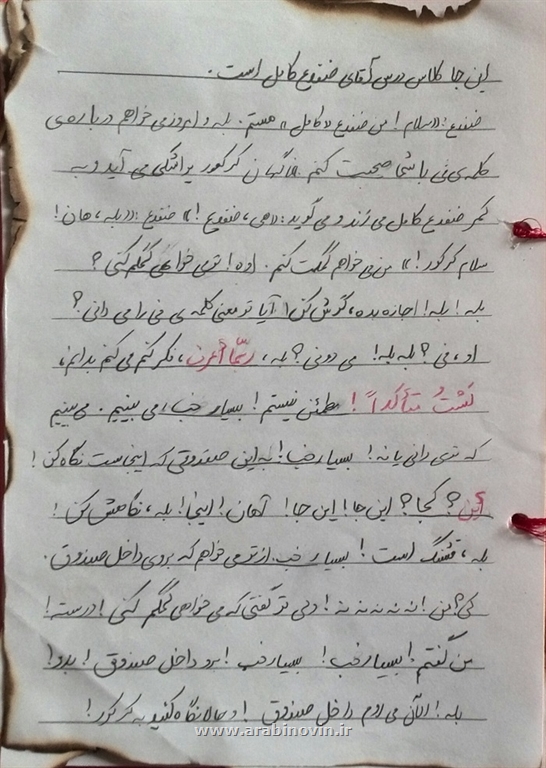 این جا کلاس درس آقای ضفدع کامل است.
ضفدع: «سلام! من ضفدع «کامل» هستم. بله و امروز می خواهم درباره ی
کلمه ی فی با شما صحبت کنم. ناگهان کرکور یواشکی می آید و به
کمر ضفدع کامل می زند و می گوید: «هی، ضفدع!» ضفدع: «بله، هان!
سلام کرکور!» من می خواهم کمکت کنم. اوه! تو می خواهی کمکم کنی؟
بله! بله! اجازه بده، گوش کن! آیا تو معنی کلمه ی فی را می دانی؟
او، فی؟ بله بله! می دونی؟ بله، ربّما أعرف، فکر کنم می کنم بدانم،
لَستُ متأکداً! مطمئن نیستم! بسیار خب، می بینیم. می بینیم
که تو می دانی یا نه! بسیار خب! به این صندوقی که اینجاست نگاه کن!
أین؟ کجا؟ این جا! این جا! آهان! اینجا! بله، نگاهش کن!
بله، قشنگ است! بسیار خب. از تو می خواهم که بروی داخل صندوق.
کی؟ من! نه نه نه نه نه! ولی تو گفتی که می خواهی کمکم کنی! درسته!
من گفتم! بسیار خب! بسیار خب! برو داخل صندوق! برو!
بله! الآن می روم داخل صندوق! و حالا نگاه کنید به کرکور!
www.arabinovin.ir